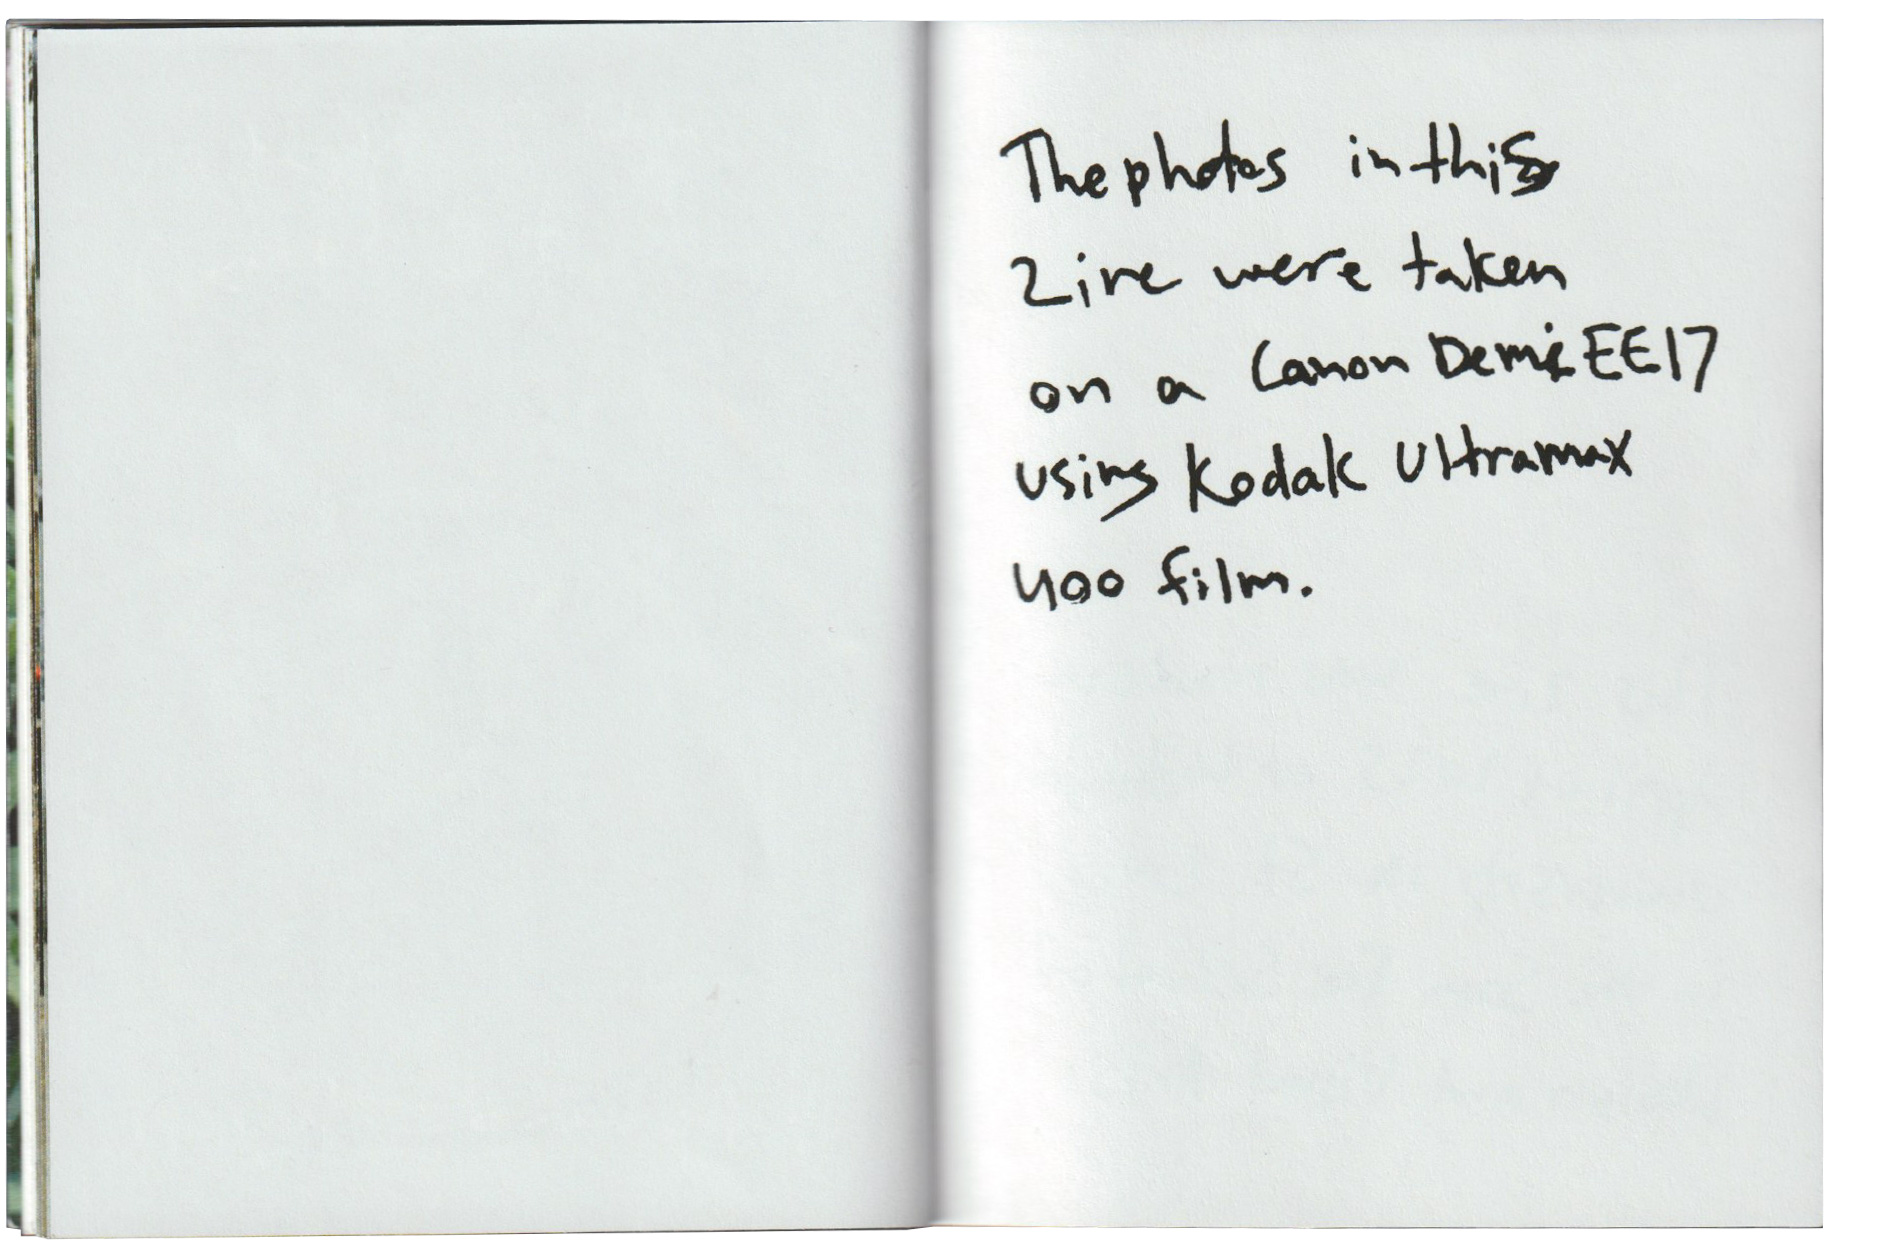 The photos in this
Zine were taken
on a Canon Demi EE17
using Kodak Ultramax
400 film.